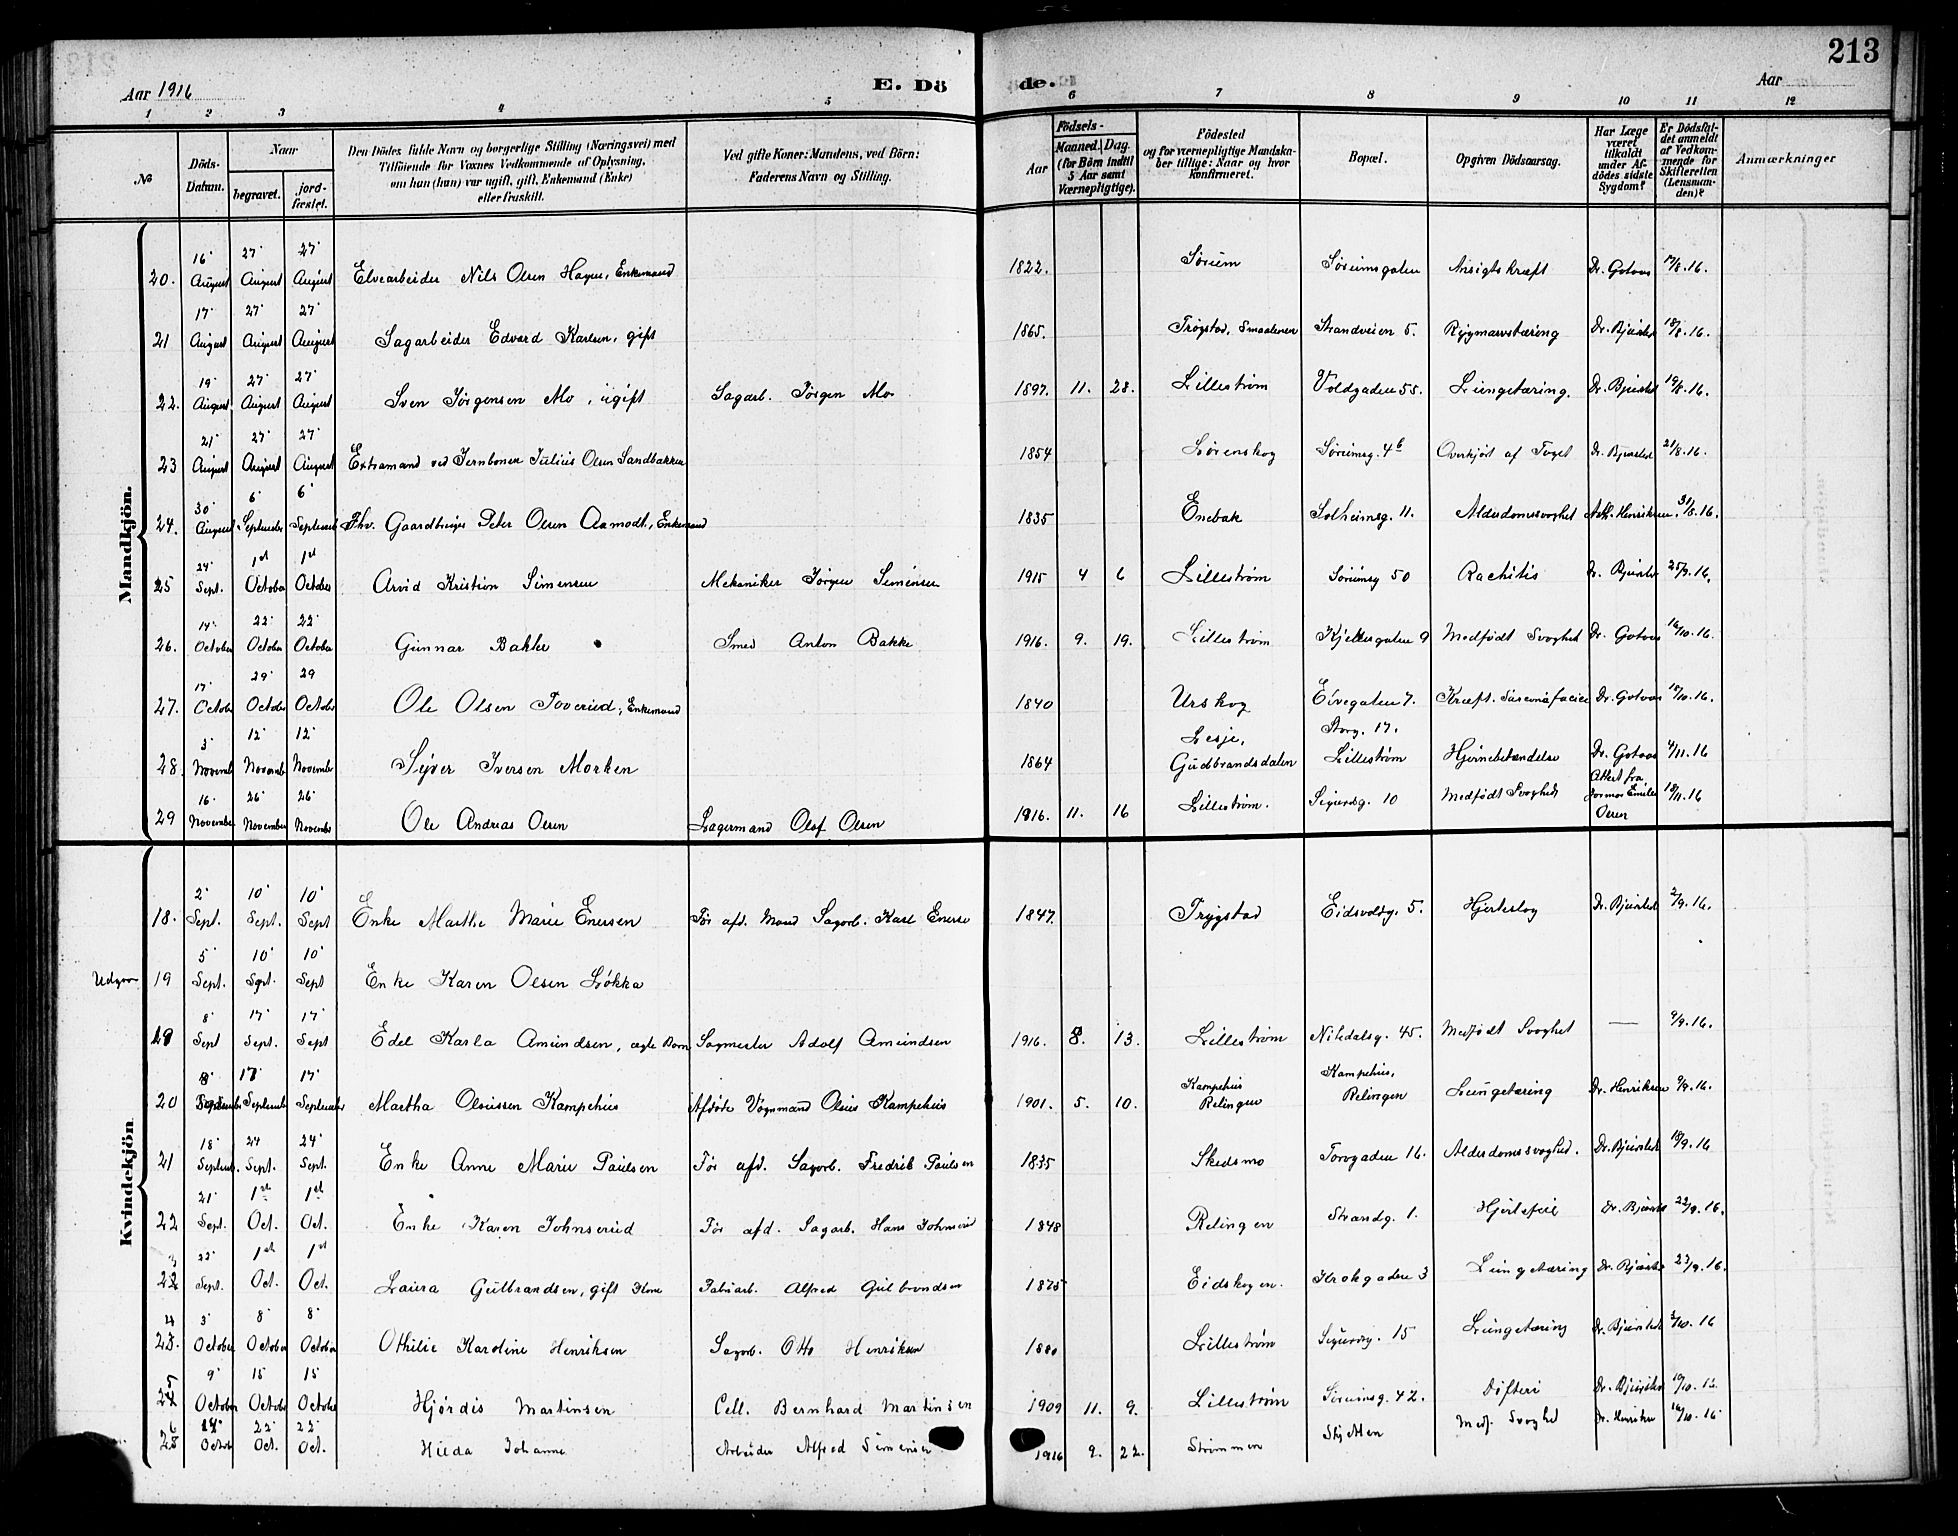 213
Aar 1916 E. Dö de. Aar
1 2 3 4 5 6 7 8 9 10 11 12
No
Döds-Datum.
Naar
begravet.
jord-fæstet.
Den Dödes fulde Navn og borgerlige Stilling (Næringsvei) med
Tilföiende for Voxnes Vedkommende af Oplysning,
om han (hun) var ugift, gift, Enkemand (Enke)
eller fraskilt.
Ved gifte Koner: Mandens, ved Börn:
Faderens Navn og Stilling.
Födsels-
Aar
Maaned. Dag.
(for Börn indtil
5 Aar samt
Værnepligtige).
Födested
og for værnepligtige Mandska-
ber tillige: Naar og hvor
konfirmeret.
Bopæl.
Opgiven Dödsaarsag.
Har Læge
været
tilkaldt
under Af-
dödes sidste
Sygdom?
Er Dödsfal-
det anmeldt
af Vedkom-
mende for
Skifteretten
(Lensman-
den)?
Anmærkninger
Mandkjön.
20. 16' August 27' August 27' August Elvearbeider Nils Olsen Hagen, Enkemand 1822. Sörum Sörumsgaten Ansigtskræft Dr. Gotaas 17/8.16.
21 17' August 27' August 27' August Sagarbeider Edvard Karlsen, gift 1865. Trøgstad, Smaalenen Strandveien 5. Rygmarvstæring Dr. Bjursted 18/8.16.
22. 19' August 27' August 27' August Sven Jörgensen Mo, ugift Sagarb. Jörgen Mo. 1897. 11. 28. Lillestrøm Voldgaden 55. Lungetæring. Dr. Bjursted 19/8.16.
23 21' August 27' August 27' August Extramand ved Jernbanen Julius Olsen Sandbakken 1854 Lørenskog Sörumsg. 4b Overkjørt af Toget Dr. Bjursted 21/8.16.
24. 30' August 6' September 6' September Fhv. Gaardbruger Peter Olsen Aamodt, Enkemand 1835 Enebak Solheimsg. 11. Alderdomssvaghet Henriksen 31/8.16.
25 24' Sept. 1st October 1st October Arvid Kristian Simensen Mekaniker Jörgen Simensen 1915 4 6 Lillestrøm Sörumsg 50 Rachitis Dr. Bjursted 25/9.16.
26. 14' October 22' October 22' October Gunnar Bakke Smed Anton Bakke 1916. 9. 19. Lillestrøm Kjellesgaten 9 Medfødt Svaghet Dr. Gotaas 16/10.16.
27. 17' October 29' October 29 October Ole Olsen Toverud, Enkemand 1840 Urskog Elvegaten 7. Kræft. Dr. Gotaas 18/10.16.
28. 3' November 12' November 12' November Syver Iversen Morken 1864 Lesje, Gudbrandsdalen Storg. 17. Lillestrøm Hjernebetændelse Dr. Gotaas 4/11.16
29 16' November 26' November 26' November Ole Andreas Olsen Lagermand Olaf Olsen 1916. 11. 16 Lillestrøm. Sigurdsg. 10 Medfødt Svaghed Attest fra Jormor Emilie Olsen 18/11.16
Kvindekjön
18. 2' Sept. 10' Sept. 10' Sept Enke Marthe Marie Enersen För afd. Mand Sagarb. Karl Enerse 1847. Trygstad Eidsvoldsg. 5. Hjerteslag Dr. Bjursted 2/9.16.
Udgaar 19 5' Sept. 10' Sept. 10' Sept Enke Karen Olsen Løkka
19 8' Sept 17' Sept. 17' Sept Edel Karla Amundsen, ægte Barn Sagmester Adolf Amundsen 1916. 8. 13. Lillestrøm Nitedalsg. 45. Medfødt Svaghet — 9/9.16.
20 8' September 17' September 17' September Martha Olsissen Kampehus Afdöde Vognmand Olsis Kampehus 1901. 5. 10. Kampehus Relingen Kampehus, Relingen Lungetæring Dr. Henriksen 9/9.16.
21 18' Septemb. 24 Sept. 24' Sept. Enke Anne Marie Paulsen För afd. Sagarb. Fredrik Paulsen 1835 Skedsmo Torvgaden 16. Alderdomssvaghed. Dr. Bjursted 18/9.16
22 21' Sept. 1st Oct. 1st Oct. Enke Karen Johnserud För afd. Sagarb. Hans Johnserud 1848 Relingen Strandg. 1. Hjertefeil Dr. Bjursted 22/9.16.
23 22' Sept. 1st Oct. 1st Oct. Laura Gulbrandsen, gift Kone Fabrarb. Alfred Gulbrandsen 1875 Eidskogen. Krokgaden 3 Lungetæring Dr. Bjursted 23/9.16.
24 3' October 8' October 8' October Othilie Karoline Henriksen Sagarb. Otto Henriksen 1880 Lillestrøm Sigurdsg. 15 Lungetæring Dr. Bjursted 3/10.16
25 9' October 15 October 15 October Hjördis Martinsen Cell. Bernhard Martinsen 1909 11. 9. Lillestrøm Sörumsg. 42. Difteri Dr. Bjursted 10/10.16
26 14' October 22' Oct. 22' Oct. Hilda Johanne Arbeider Alfred Simensen 1916 9. 22. Strømmen Stijetten Medf. Svaghet Dr. Henriksen 16/10.16